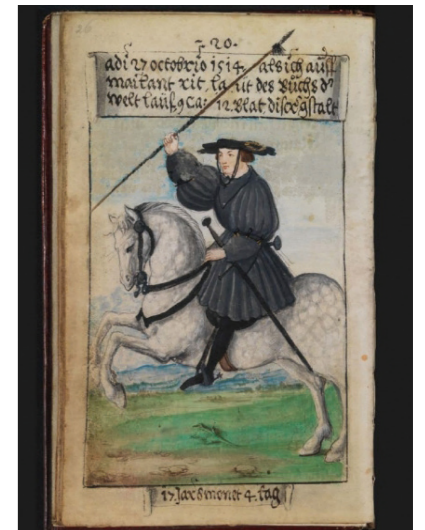 26
· 20 ·
adi 27 octobrio 1514, als ich auff
mailant rit, laut des buchs dr
welt lauff 9 Ca: 12. blat diser gstalt
17 Jar 8 monet 4. tag